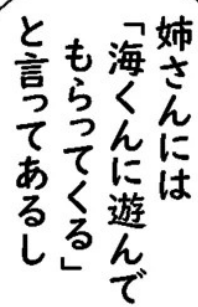 姉さんには
「海くんに遊んで
もらってくる」
と言ってあるし